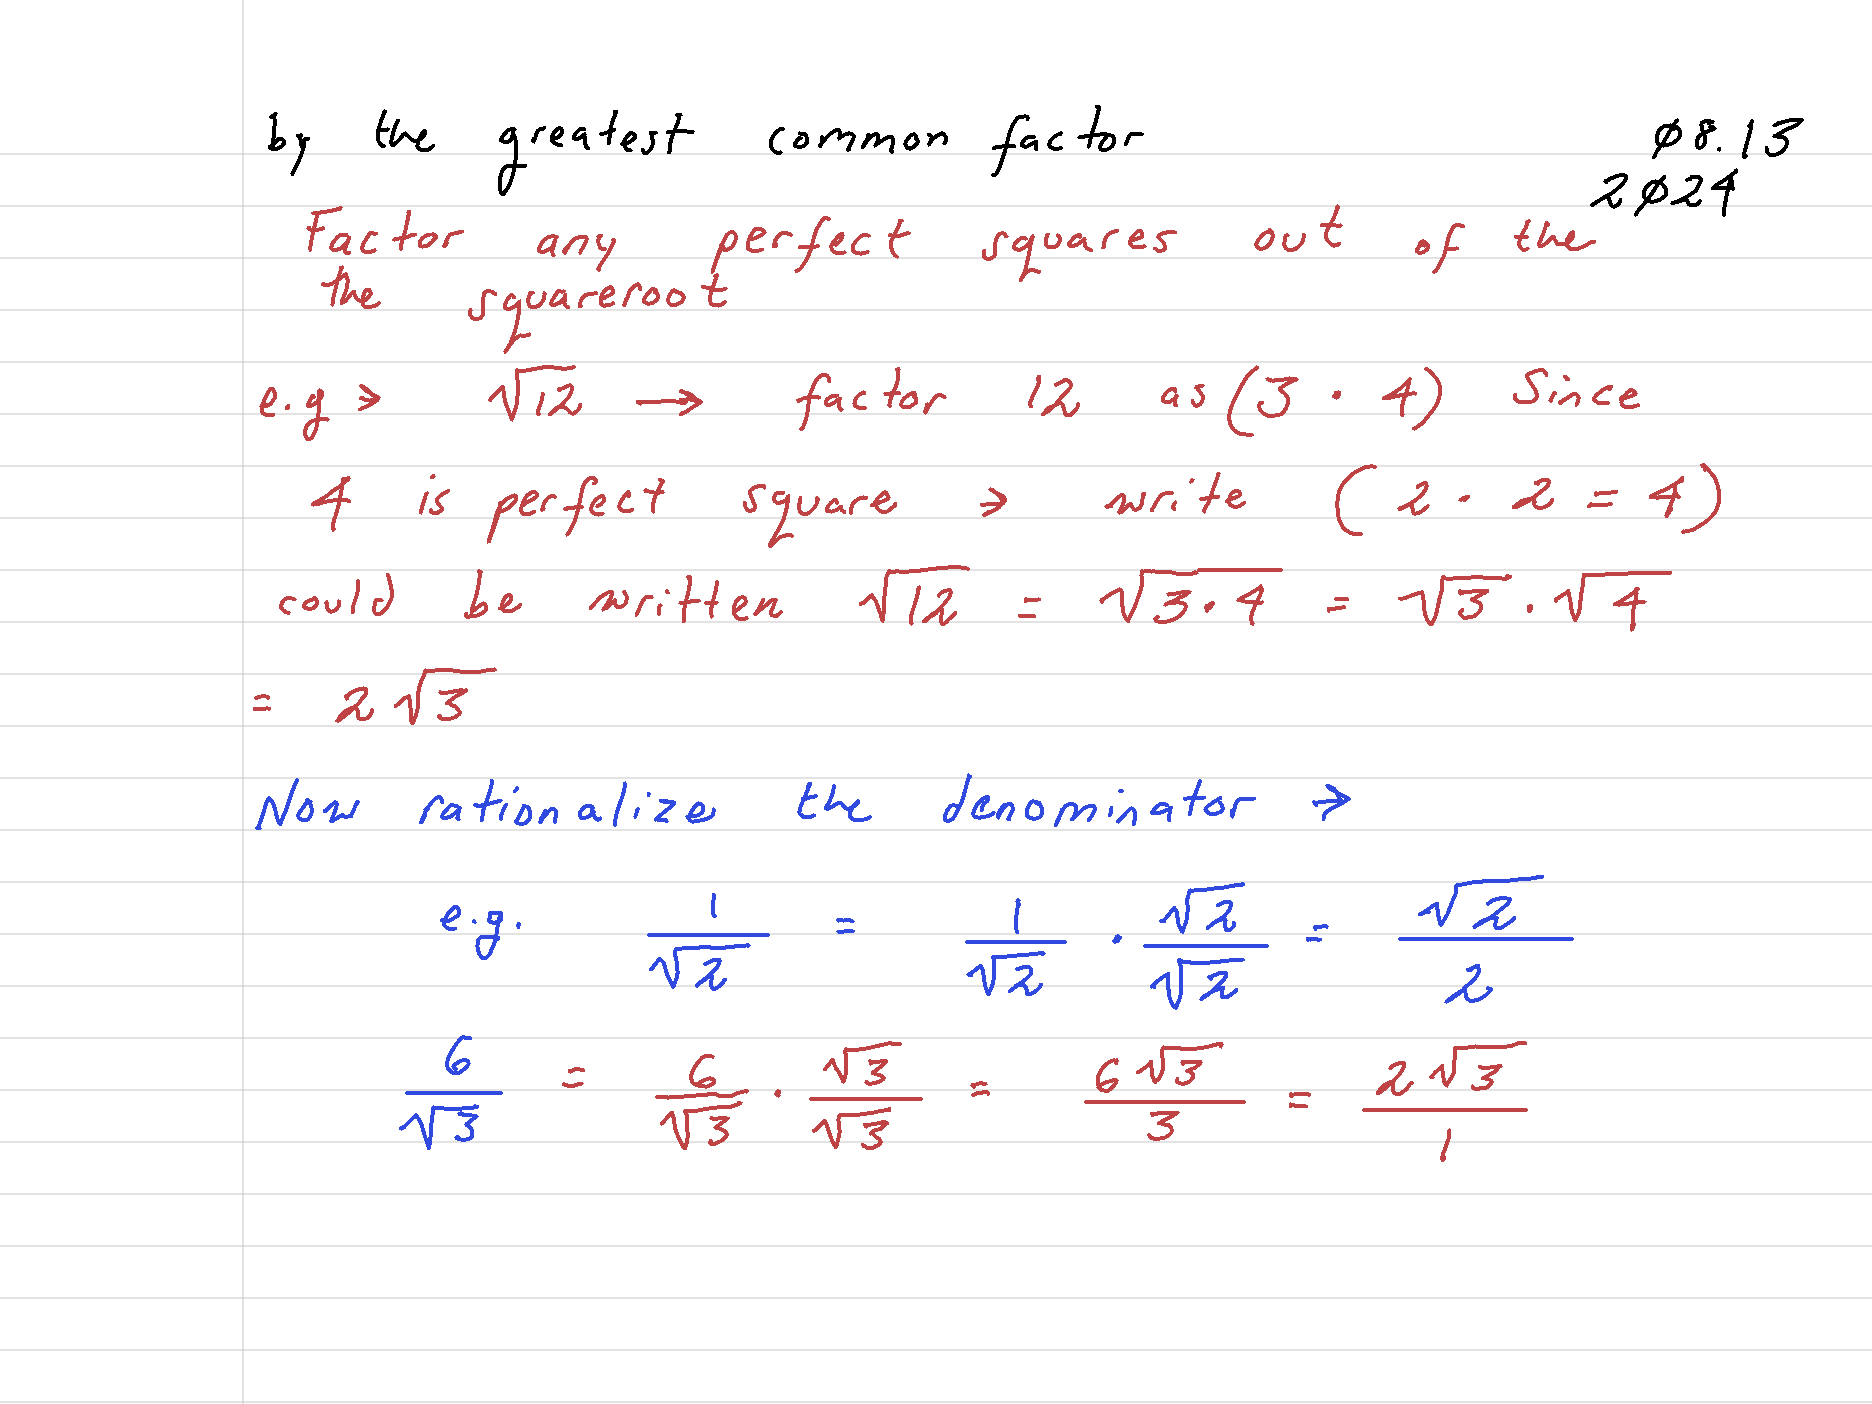 by the greatest common factor
08.13
2024
Factor any perfect squares out of the
the squareroot
e.g → √12 → factor 12 as (3 · 4) Since
4 is perfect square → write (2 · 2 = 4)
could be written √12 = √3·4 = √3 · √4
= 2√3
Now rationalize the denominator →
e.g. 1/√2 = 1/√2 · √2/√2 = √2/2
6/√3 = 6/√3 · √3/√3 = 6√3/3 = 2√3/1